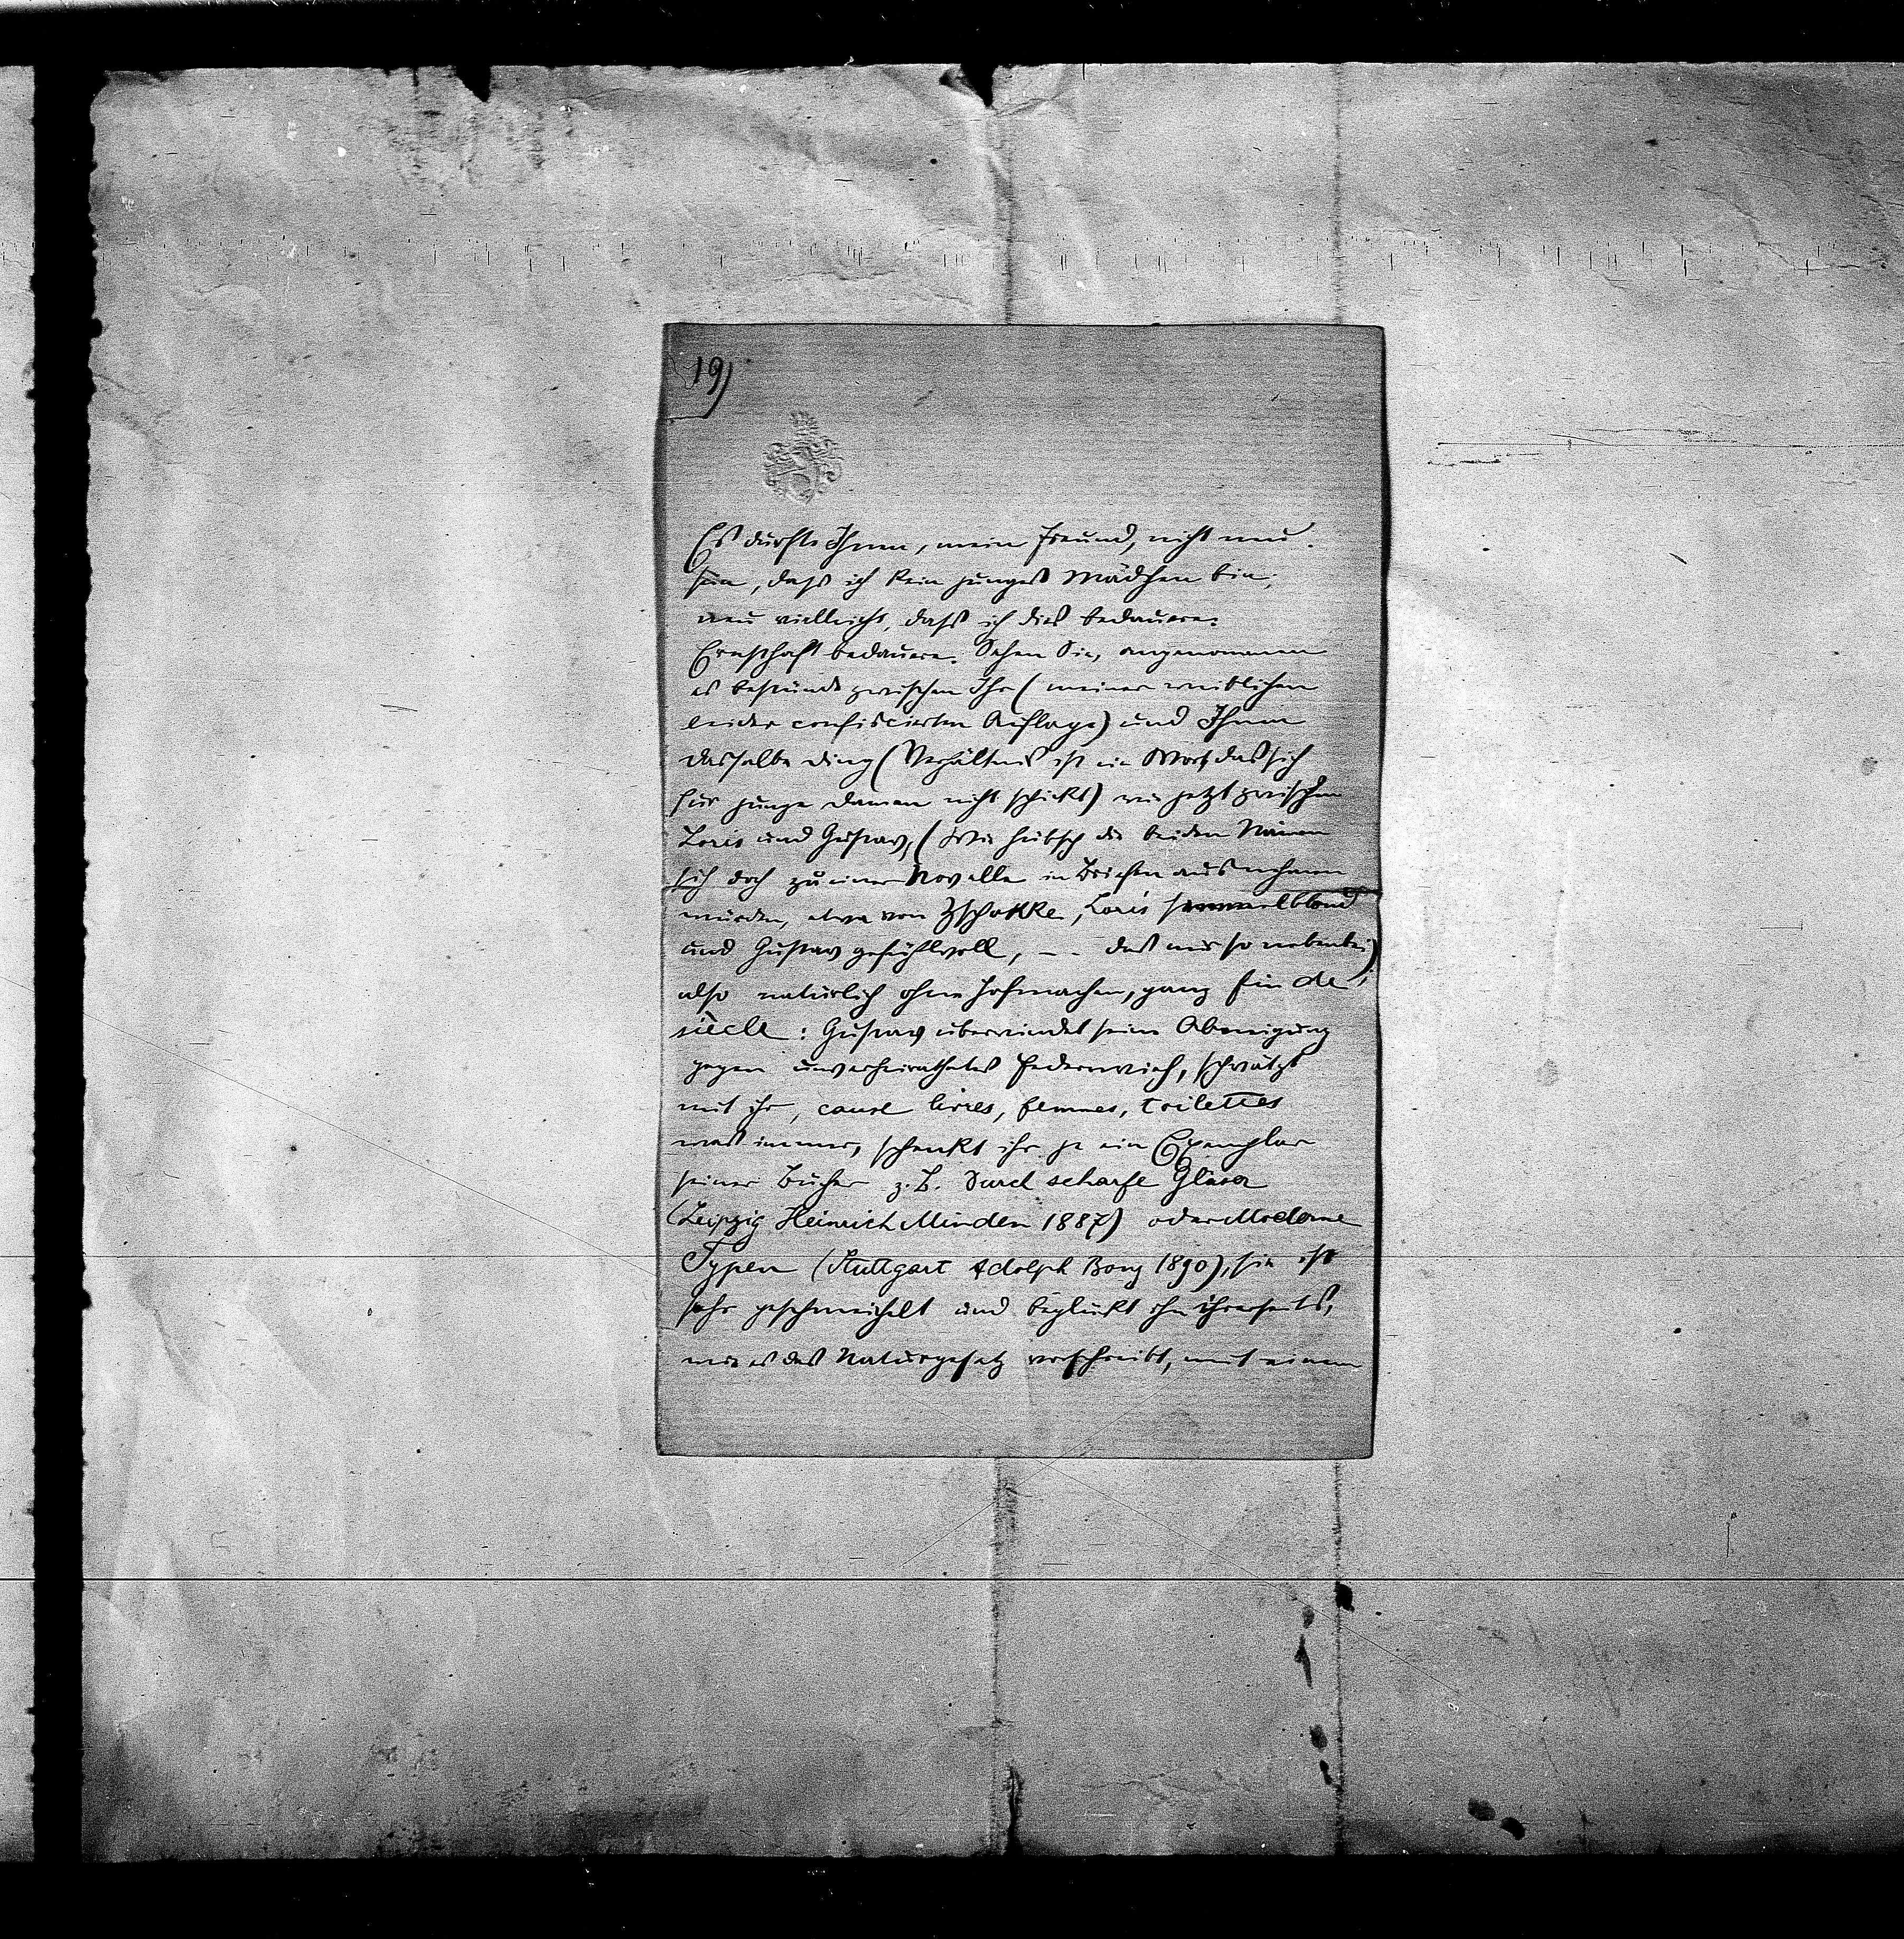 19)
Es dürfte Ihnen, mein Freund, nicht neu
sein, dass ich kein junges Mädchen bin;
neu vielleicht, dass ich dies bedauere.
Ernsthaft bedauere. Sehen Sie, angenommen
es bestünde zwischen Ihr (meiner weiblichen
leider confiscierten Auflage) und Ihnen
dasselbe Ding (Verhältnis ist ein Wort das sich
für junge Damen nicht schickt) wie jetzt zwischen
Loris und Gustav, (Wie hübsch die beiden Namen
sich doch zu einer Novelle in Briefen ausnehmen
würden, etwa von Zschokke, Loris semmelblond
und Gustav gefühlvoll, -- das nur so nebenbei)
also natürlich ohne Hofmachen, ganz fin de
siècle: Gustav überwindet seine Abneigung
gegen unverheirathetes Federvieh, schwätzt
mit ihr, cause livres, femmes, toilettes
was immer, schenkt ihr je ein Exemplar
seiner Bücher z. B. Durch scharfe Gläser
(Leipzig Heinrich Minden 1887) oder Moderne
Typen (Stuttgart Adolph Bonz 1890), sie ist
sehr geschmeichelt und beglückt ihn ihrerseits,
wie es das Naturgesetz vorschreibt, mit einem